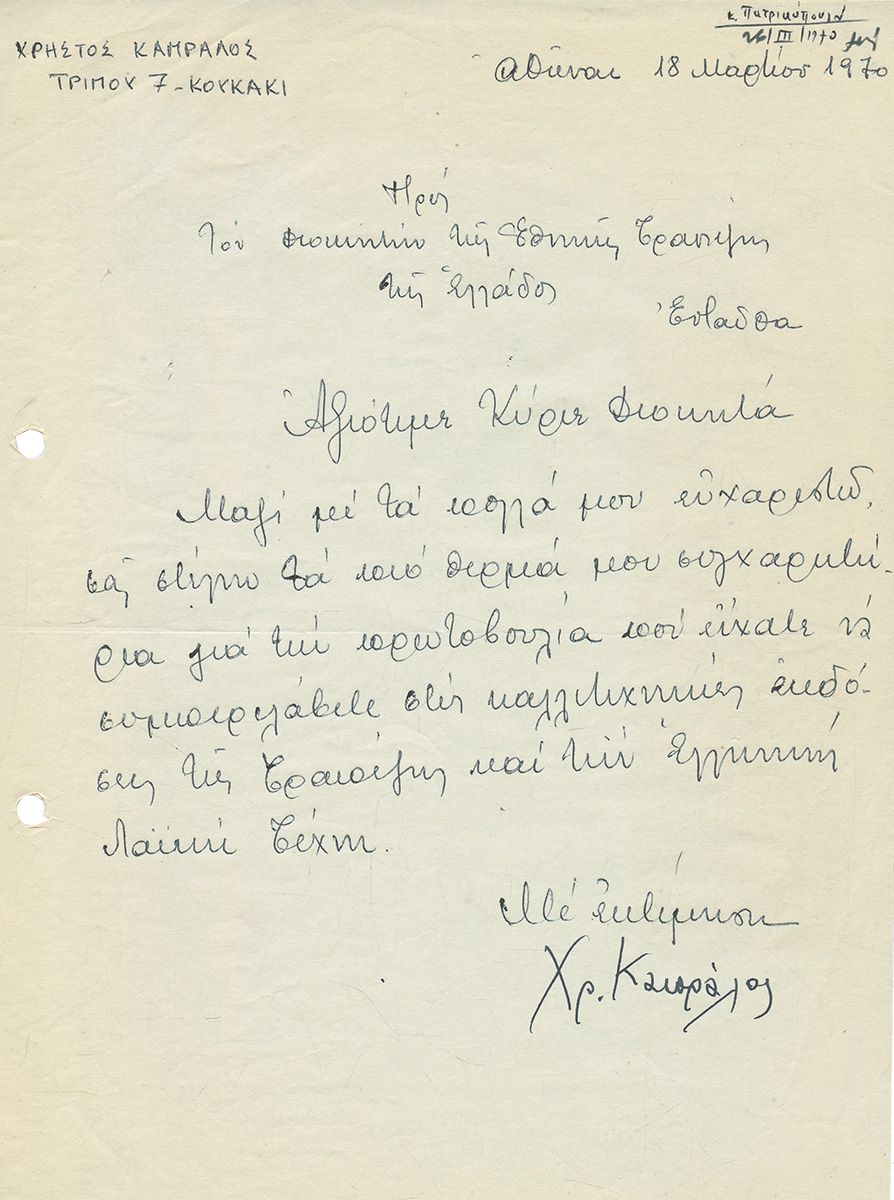 κ. Πατρικόπουλο
26/III/1970
ΧΡΗΣΤΟΣ ΚΑΠΡΑΛΟΣ
ΤΡΙΠΟΥ 7 - ΚΟΥΚΑΚΙ
Ἀθῆναι 18 Μαρτίου 1970
Πρός
Τόν Διοικητήν τῆς Ἐθνικῆς Τραπέζης
τῆς Ἑλλάδος
Ἐνταῦθα
Ἀξιότιμε Κύριε Διοικητά
Μαζί μέ τά πολλά μου εὐχαριστῶ,
σᾶς στέλνω τά πιό θερμά μου συγχαρητή-
ρια γιά τήν πρωτοβουλία πού εἴχατε νά
συμπεριλάβετε στίς καλλιτεχνικές ἐκδό-
σεις τῆς Τραπέζης καί τήν Ἑλληνική
Λαϊκή Τέχνη.
Μέ ἐκτίμηση
Χρ. Καπράλος